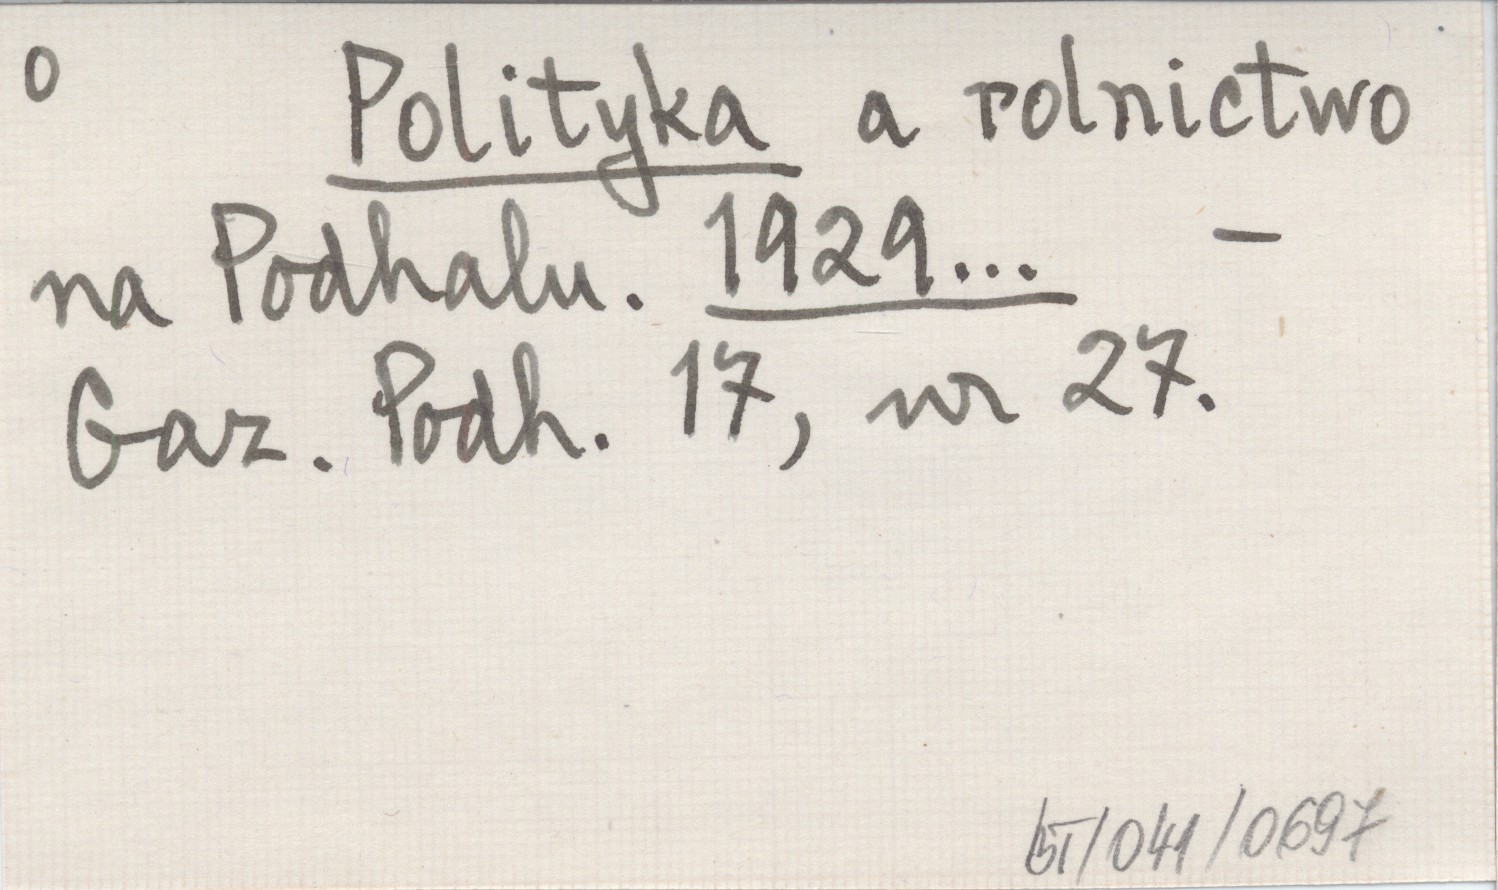 o Polityka a rolnictwo
na Podhalu. 1929... –
Gaz. Podh. 17, nr 27.
/041/0697